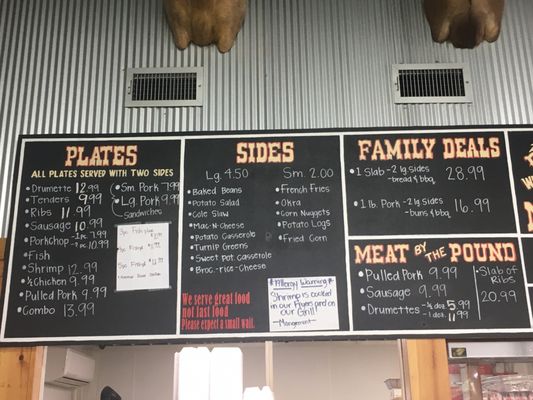 PLATES
ALL PLATES SERVED WITH TWO SIDES
• Drumette 12.99
• Tenders 9.99
• Ribs 11.99
• Sausage 10.99
• Porkchop -1pc 7.99
-2pc 10.99
• Fish
• Shrimp 12.99
• ¼ Chicken 9.99
• Pulled Pork 9.99
• Combo 13.99
• Sm. Pork 7.99
• Lg. Pork 9.99
Sandwiches
SIDES
Lg. 4.50
Sm. 2.00
• Baked Beans
• Potato Salad
• Cole Slaw
• Mac-N-Cheese
• Potato Casserole
• Turnip Greens
• Sweet pot. casserole
• Broc.-rice-Cheese
• French Fries
• Okra
• Corn Nuggets
• Potato Logs
• Fried Corn
We serve great food
not fast food
Please expect a small wait.
Allergy Warning
Shrimp is cooked
in our Fryers and on
our Grill!
-Management-
FAMILY DEALS
• 1 Slab -2 lg. sides
-bread & bbq
28.99
• 1 lb. Pork -2 lg. sides
-buns & bbq
16.99
MEAT BY THE POUND
• Pulled Pork 9.99
• Sausage 9.99
• Drumettes -½ doz 5.99
-1 doz 11.99
• Slab of
Ribs
20.99